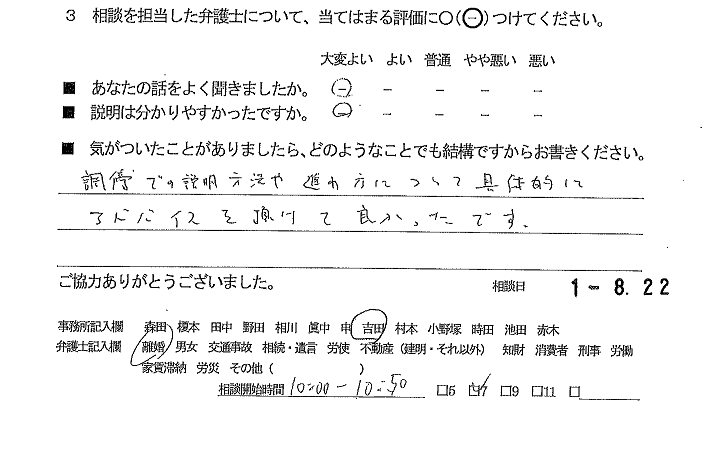 3 相談を担当した弁護士について、当てはまる評価に〇(㊀)つけてください。
大変よい よい 普通 やや悪い 悪い
■ あなたの話をよく聞きましたか。 － － － － －
■ 説明は分かりやすかったですか。 － － － － －
■ 気がついたことがありましたら、どのようなことでも結構ですからお書きください。
調停での説明方法や進め方について具体的に
アドバイスを頂けて良かったです。
ご協力ありがとうございました。 相談日 1-8.22
事務所記入欄 森田 榎本 田中 野田 相川 眞中 申 吉田 村本 小野塚 時田 池田 赤木
弁護士記入欄 離婚 男女 交通事故 相続・遺言 労使 不動産（建明・それ以外） 知財 消費者 刑事 労働
家賃滞納 労災 その他（ ）
相談開始時間 10:00-10:50 □5 □7 □9 □11 □